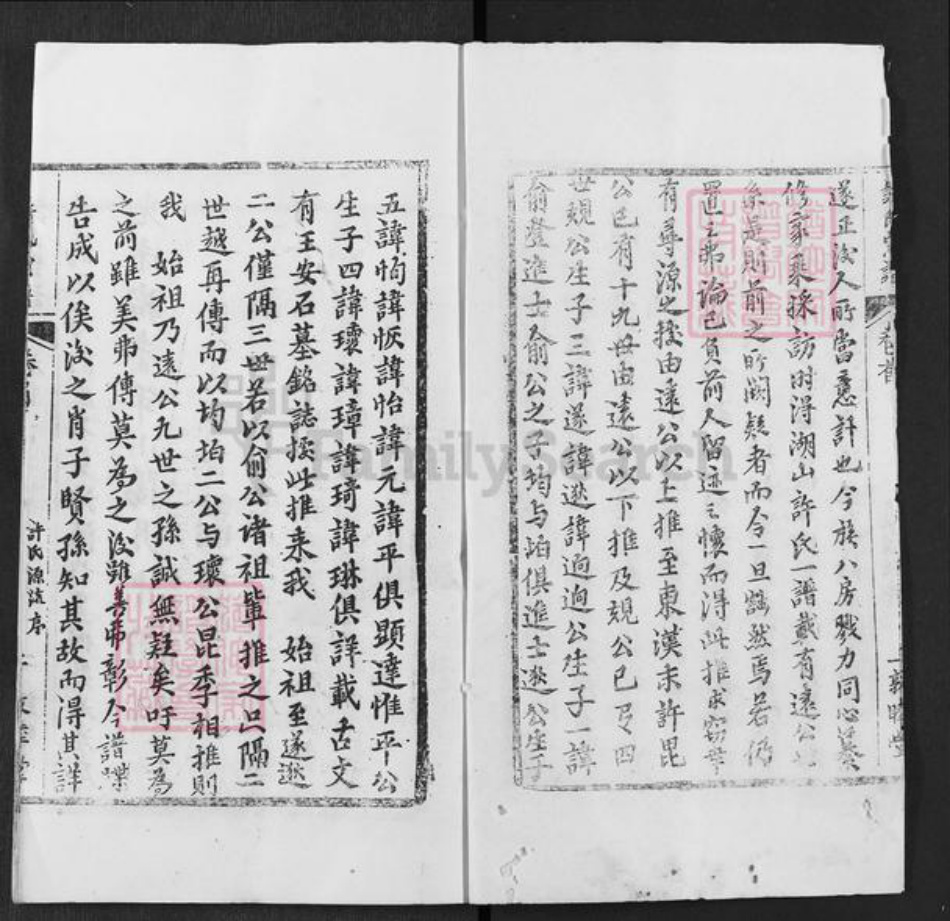 遂正後人所當急計也今族八房戮力同心纂
修家乘採訪時得湖山許氏一譜載有遠公
系是則前之所闕疑者而今一旦豁然焉若仍
置之弗論已負前人留迹之懷而得此推求竊幸
有尋源之援由遠公以上推至東漢末許毘
公已有十九世由遠公以下推及規公已有四
世規公生子三諱遂諱逖諱逈逈公生子一諱
俞登進士俞公之子均与垍俱進士逖公生子
五諱恂諱恢諱怡諱元諱平俱顯達惟平公
生子四諱瓌諱璋諱琦諱琳俱詳載古文
有王安石墓銘誌援此推来我 始祖至遂逖
二公僅隔三世若以俞公诸祖軰推之只隔二
世越再傳而以均垍二公与瓌公昆季相推則
我 始祖乃遠公九世之孫誠無疑矣吁莫為
之前雖美弗傳莫為之後雖善弗彰今譜牒
告成以俟後之肖子賢孫知其故而得其詳
許氏源流序
FamilySearch